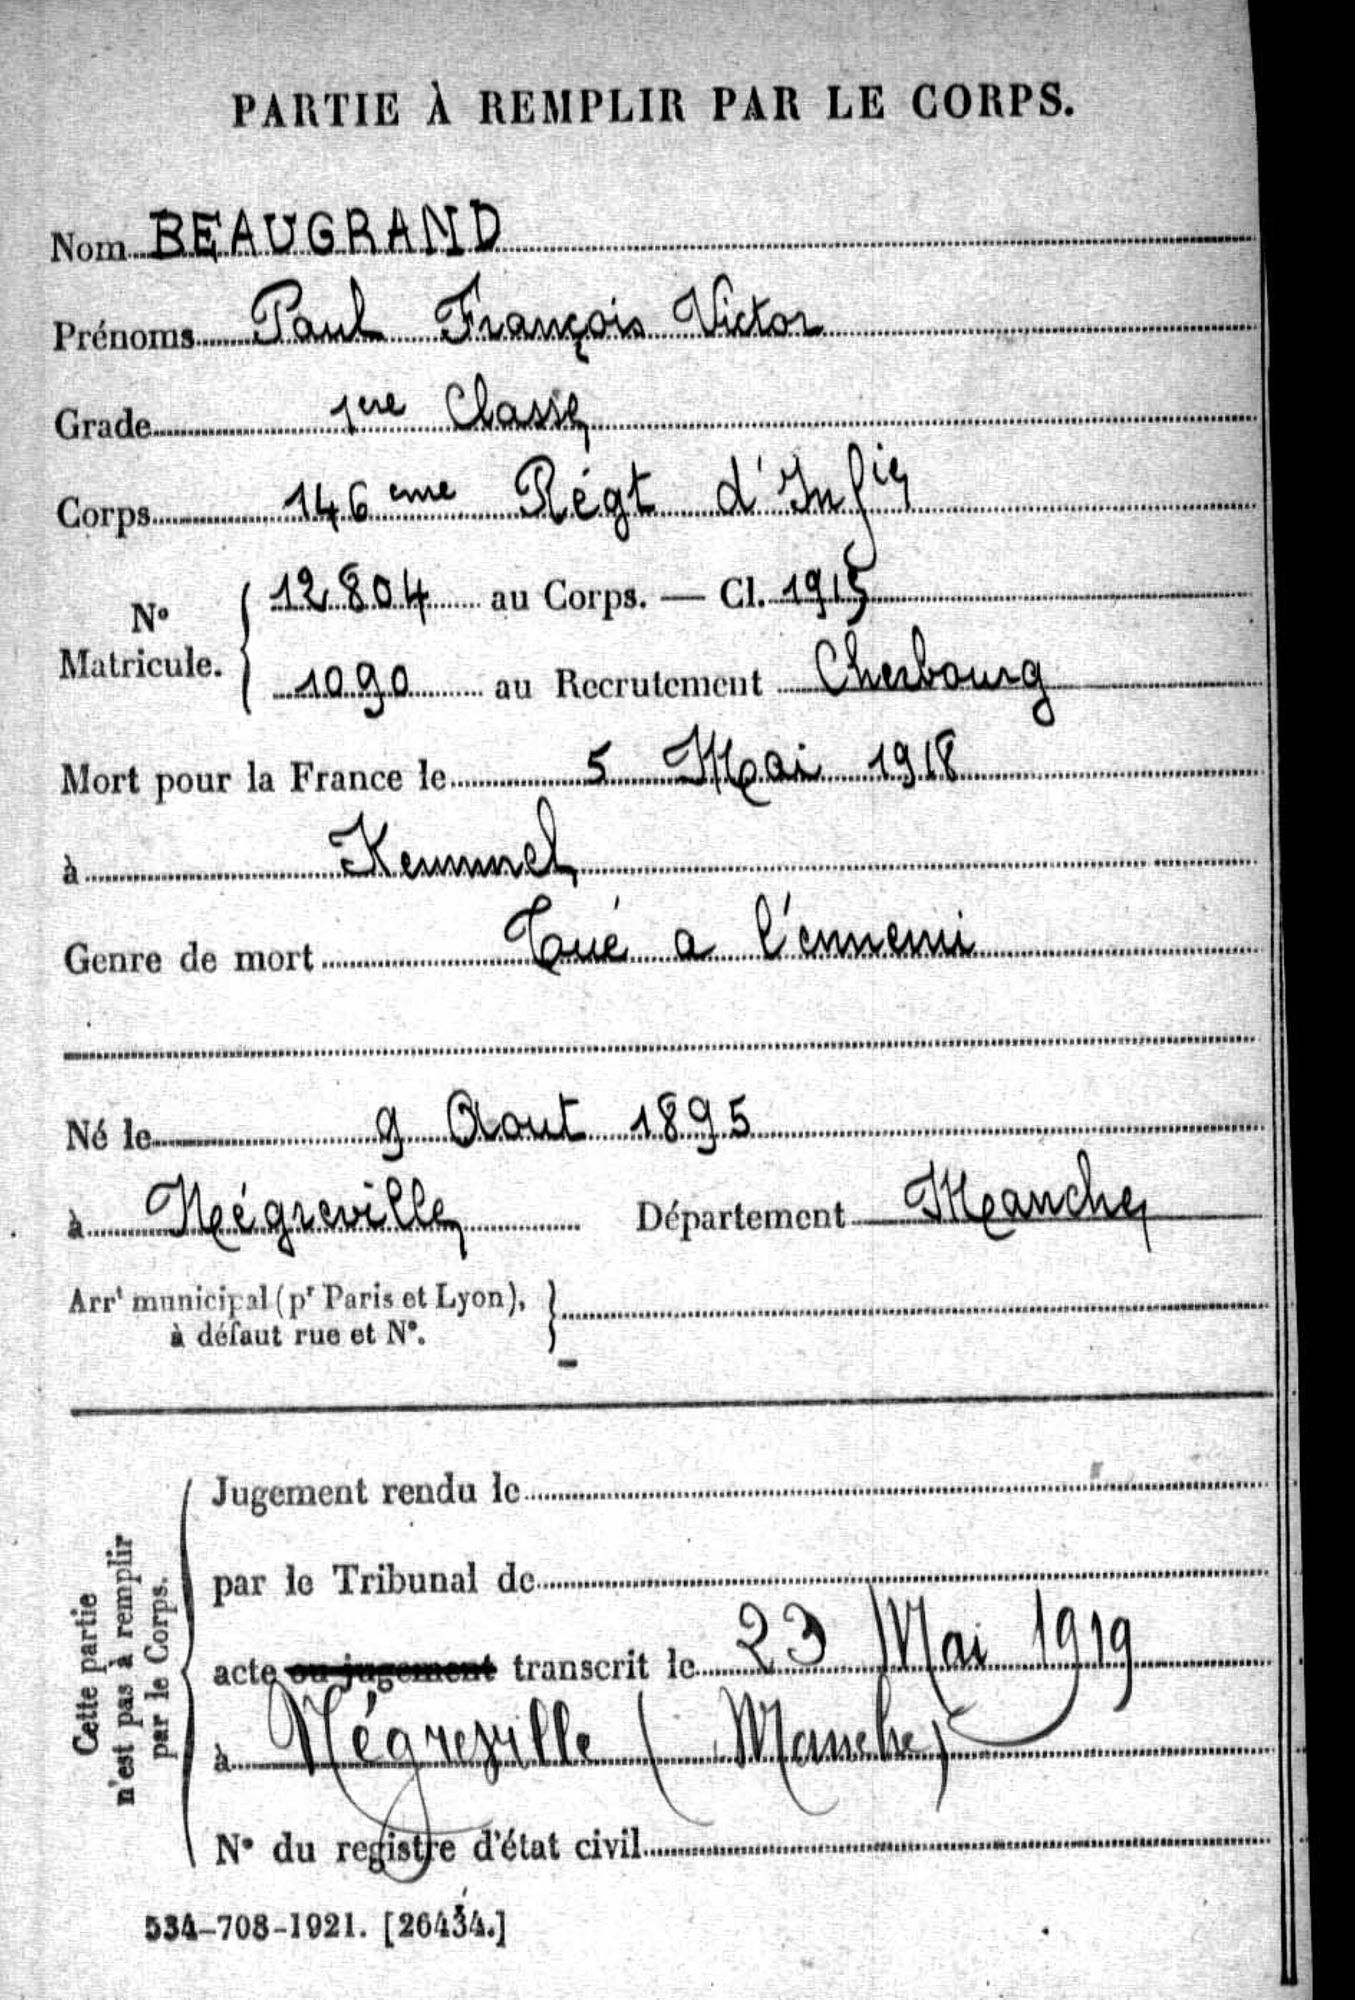 PARTIE À REMPLIR PAR LE CORPS.
Nom BEAUGRAND
Prénoms Paul François Victor
Grade 1ere Classe
Corps 146 eme Régt d'Infie
N° Matricule. 12804 au Corps. — Cl. 1915
1090 au Recrutement Cherbourg
Mort pour la France le 5 Mai 1918
à Kemmel
Genre de mort Tué a l'ennemi
Né le 9 Aout 1895
à Négreville Département Manche
Arrt municipal (pr Paris et Lyon),
à défaut rue et N°.
Cette partie
n'est pas à remplir
par le Corps.
Jugement rendu le
par le Tribunal de
acte ou jugement transcrit le 23 Mai 1919
à Négreville (Manche)
N° du registre d'état civil
534-708-1921. [26434.]